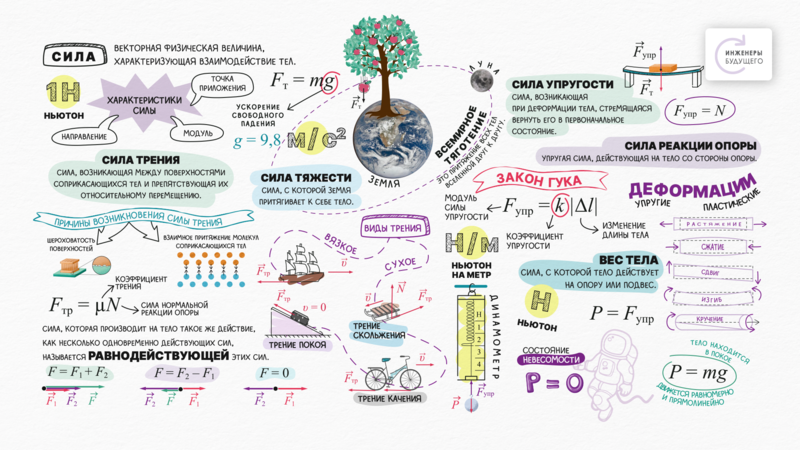 СИЛА
ВЕКТОРНАЯ ФИЗИЧЕСКАЯ ВЕЛИЧИНА,
ХАРАКТЕРИЗУЮЩАЯ ВЗАИМОДЕЙСТВИЕ ТЕЛ.
1Н
НЬЮТОН
ХАРАКТЕРИСТИКИ
СИЛЫ
ТОЧКА
ПРИЛОЖЕНИЯ
НАПРАВЛЕНИЕ
МОДУЛЬ
Fт = mg
УСКОРЕНИЕ
СВОБОДНОГО
ПАДЕНИЯ
g = 9,8 м/с²
СИЛА ТЯЖЕСТИ
СИЛА, С КОТОРОЙ ЗЕМЛЯ
ПРИТЯГИВАЕТ К СЕБЕ ТЕЛО.
Fт
ЗЕМЛЯ
ЛУНА
ВСЕМИРНОЕ
ТЯГОТЕНИЕ
ЭТО ПРИТЯЖЕНИЕ ВСЕХ ТЕЛ
ВСЕЛЕННОЙ ДРУГ К ДРУГУ.
СИЛА ТРЕНИЯ
СИЛА, ВОЗНИКАЮЩАЯ МЕЖДУ ПОВЕРХНОСТЯМИ
СОПРИКАСАЮЩИХСЯ ТЕЛ И ПРЕПЯТСТВУЮЩАЯ ИХ
ОТНОСИТЕЛЬНОМУ ПЕРЕМЕЩЕНИЮ.
ПРИЧИНЫ ВОЗНИКНОВЕНИЯ СИЛЫ ТРЕНИЯ
ШЕРОХОВАТОСТЬ
ПОВЕРХНОСТЕЙ
ВЗАИМНОЕ ПРИТЯЖЕНИЕ МОЛЕКУЛ
СОПРИКАСАЮЩИХСЯ ТЕЛ
КОЭФФИЦИЕНТ
ТРЕНИЯ
Fтр = μN
СИЛА НОРМАЛЬНОЙ
РЕАКЦИИ ОПОРЫ
СИЛА, КОТОРАЯ ПРОИЗВОДИТ НА ТЕЛО ТАКОЕ ЖЕ ДЕЙСТВИЕ,
КАК НЕСКОЛЬКО ОДНОВРЕМЕННО ДЕЙСТВУЮЩИХ СИЛ,
НАЗЫВАЕТСЯ РАВНОДЕЙСТВУЮЩЕЙ ЭТИХ СИЛ.
F = F₁ + F₂
F = F₂ – F₁
F = 0
F₁ F₂ F
F₂ F F₁
F₂ F₁
ВИДЫ ТРЕНИЯ
ВЯЗКОЕ
СУХОЕ
Fтр
υ
Fтр
υ = 0
ТРЕНИЕ ПОКОЯ
N
Fтр
υ
ТРЕНИЕ
СКОЛЬЖЕНИЯ
υ
Fтр
ТРЕНИЕ КАЧЕНИЯ
СИЛА УПРУГОСТИ
СИЛА, ВОЗНИКАЮЩАЯ
ПРИ ДЕФОРМАЦИИ ТЕЛА, СТРЕМЯЩАЯСЯ
ВЕРНУТЬ ЕГО В ПЕРВОНАЧАЛЬНОЕ
СОСТОЯНИЕ.
Fупр
Fт
Fупр = N
ИНЖЕНЕРЫ
БУДУЩЕГО
СИЛА РЕАКЦИИ ОПОРЫ
УПРУГАЯ СИЛА, ДЕЙСТВУЮЩАЯ НА ТЕЛО СО СТОРОНЫ ОПОРЫ.
ЗАКОН ГУКА
МОДУЛЬ
СИЛЫ
УПРУГОСТИ
Fупр = k|Δl|
КОЭФФИЦИЕНТ
УПРУГОСТИ
ИЗМЕНЕНИЕ
ДЛИНЫ ТЕЛА
Н/м
НЬЮТОН
НА МЕТР
ДИНАМОМЕТР
Н
1
2
3
4
Fупр
P
ДЕФОРМАЦИИ
УПРУГИЕ
ПЛАСТИЧЕСКИЕ
РАСТЯЖЕНИЕ
СЖАТИЕ
СДВИГ
ИЗГИБ
КРУЧЕНИЕ
ВЕС ТЕЛА
СИЛА, С КОТОРОЙ ТЕЛО ДЕЙСТВУЕТ
НА ОПОРУ ИЛИ ПОДВЕС.
Н
НЬЮТОН
P = Fупр
СОСТОЯНИЕ
НЕВЕСОМОСТИ
P = 0
ТЕЛО НАХОДИТСЯ
В ПОКОЕ
P = mg
ДВИЖЕТСЯ РАВНОМЕРНО
И ПРЯМОЛИНЕЙНО